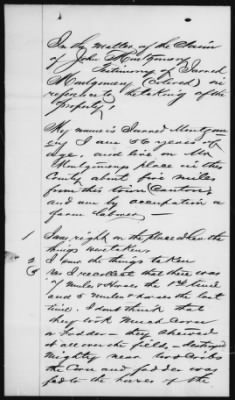 In the matter of the Claim
of John Montgomery
Testimony of Jarred
Montgomery (Colored) in
reference to the taking of the
property;
My name is Jarred Montgom
ery I am 56 years of
age, and live on Mr
Montgomery place in this
County about five miles
from this town (Canton)
and am by occupation a
farm laborer —
1 I was right on the place when the
things was taken
2 I saw the things taken
3 Yes I recollect that there was
7 mules & Horses the 1st time
and 5 mules & horses the last
time. I dont think that
they took much corn
or Fodder — they
it all over the fields, — destroyed
mighty near two Cribs
the Corn and fodder was
fed to the horses of the